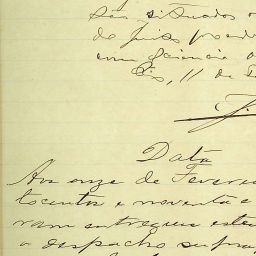 são situados
do Juiz
com sciencia
Rio, 11 de
J.
Data
Aos onze de Feverei
tocentos e noventa e
ram entregues estes
o despacho supra